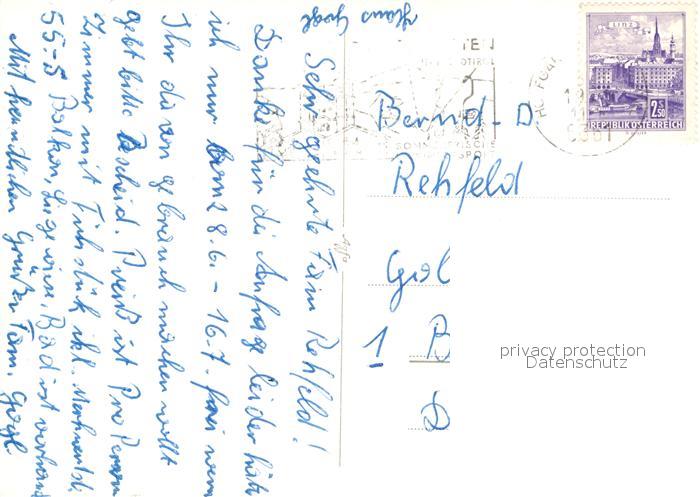 Haus Gogl
Sehr geehrte Fam Rehfeld!
Danke für die Anfrage leider hät
ich nur 8.6. – 16.7. frei wenn
Ihr davon gebrauch machen wollt
gebt bitte Bescheid. Preiß ist Pro Person
Zimmer mit Frühstück ikl.
55-S Balkon Liegewiese, Bad ist vorhand
Mit freundlichen Grüßen Fam. Gogl
LINZ
2.50
REPUBLIK ÖSTERREICH
Bernd-D.
Rehfeld
1 B
D
privacy protection
Datenschutz